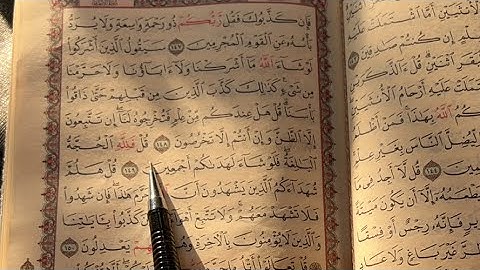 ٱلْأُنثَيَيْنِ أَمَّا ٱشْتَمَلَتْ
إِن كُنتُمْ صَٰدِقِينَ
ٱثْنَيْنِ قُلْ ءَآلذَّكَرَيْنِ
عَلَيْهِ أَرْحَامُ ٱلْأُنثَيَيْنِ
ٱللَّهُ بِهَٰذَا فَمَنْ
ٱلنَّاسَ بِغَيْرِ عِلْمٍ
١٤٤ قُل لَّآ أَجِدُ فِى مَآ
يَطْعَمُهُۥٓ إِلَّآ أَن يَكُونَ مَيْتَةً
فَإِنَّهُۥ رِجْسٌ أَوْ فِسْقًا
غَيْرَ بَاغٍ وَلَا عَادٍ
فَإِن كَذَّبُوكَ فَقُل رَّبُّكُمْ ذُو رَحْمَةٍ وَٰسِعَةٍ وَلَا يُرَدُّ
بَأْسُهُۥ عَنِ ٱلْقَوْمِ ٱلْمُجْرِمِينَ ١٤٧ سَيَقُولُ ٱلَّذِينَ أَشْرَكُوا۟
لَوْ شَآءَ ٱللَّهُ مَآ أَشْرَكْنَا وَلَآ ءَابَآؤُنَا وَلَا حَرَّمْنَا
مِن شَىْءٍ كَذَٰلِكَ كَذَّبَ ٱلَّذِينَ مِن قَبْلِهِمْ حَتَّىٰ ذَاقُوا۟
بَأْسَنَا قُلْ هَلْ عِندَكُم مِّنْ عِلْمٍ فَتُخْرِجُوهُ لَنَآ إِن تَتَّبِعُونَ
إِلَّا ٱلظَّنَّ وَإِنْ أَنتُمْ إِلَّا تَخْرُصُونَ ١٤٨ قُلْ فَلِلَّهِ ٱلْحُجَّةُ
ٱلْبَٰلِغَةُ فَلَوْ شَآءَ لَهَدَىٰكُمْ أَجْمَعِينَ ١٤٩ قُلْ هَلُمَّ
شُهَدَآءَكُمُ ٱلَّذِينَ يَشْهَدُونَ أَنَّ حَرَّمَ هَٰذَا فَإِن شَهِدُوا۟
فَلَا تَشْهَدْ مَعَهُمْ وَلَا تَتَّبِعْ أَهْوَآءَ كَذَّبُوا۟ بِـَٔايَٰتِنَا
وَٱلَّذِينَ لَا يُؤْمِنُونَ بِٱلْءَاخِرَةِ وَهُم يَعْدِلُونَ ١٥٠
قُلْ تَعَالَوْا۟ أَتْلُ